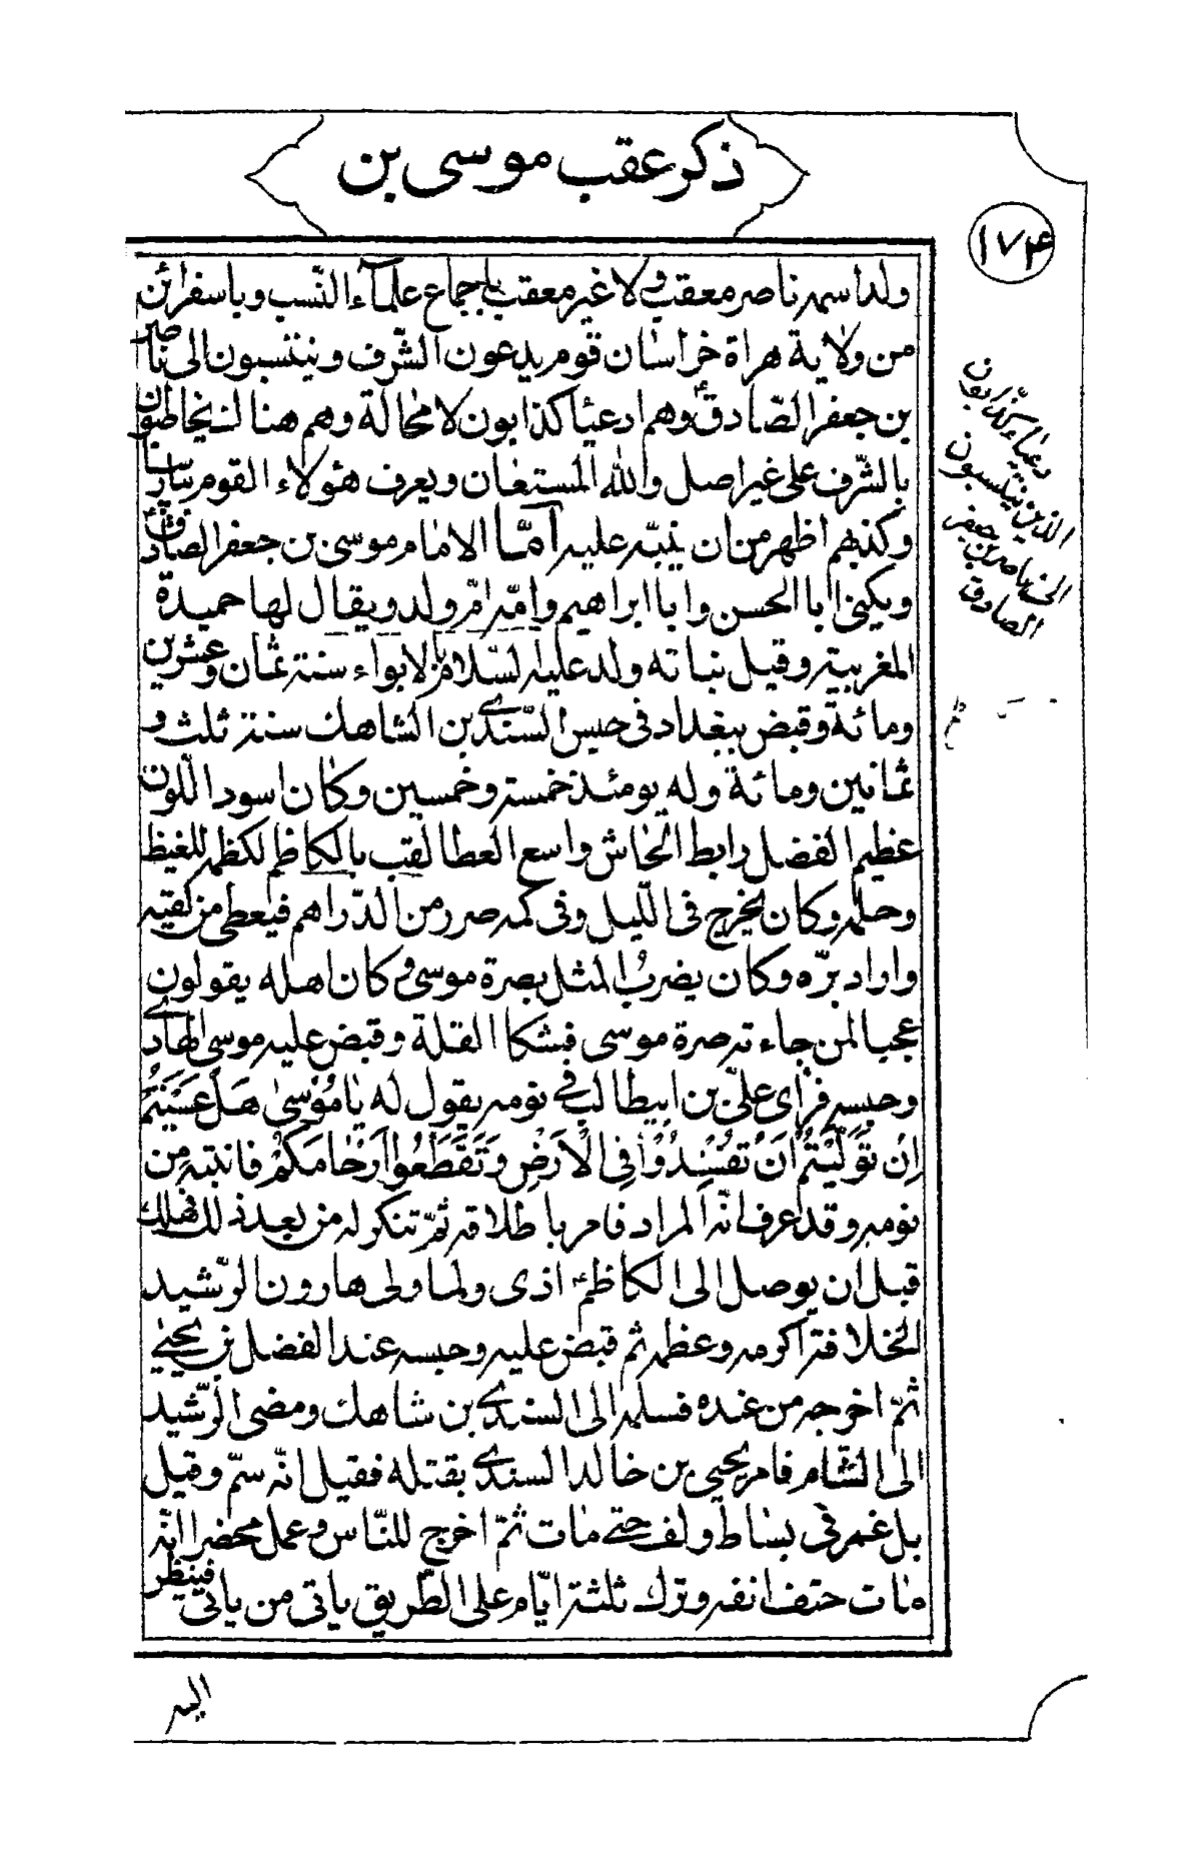 ذكر عقب موسى بن
١٧٤
ولدا سمه ناصر معقب ولا غير معقب باجماع علماء النسب وباسفرائن
من ولاية هراة خراسان قوم يدعون الشرف وينتسبون الى ناصر
بن جعفر الصّادق ع وهم ادعيا كذابون لا محالة وهم هنا لك يخاطبون
بالشّرف على غير اصل والله المستعان ويعرف هؤلاء القوم
وكذبهم اظهر من ان ينبّه عليه امّا الامام موسى بن جعفر الصّادق ع
ويكنى ابا الحسن وابا ابراهيم وامّه امّ ولد ويقال لها حميدة
المغربية وقيل نباته ولد عليه السّلام بالابواء سنة ثمان وعشرين
ومائة وقبض ببغداد فى حبس السّندى بن الشاهك سنة ثلث و
ثمانين ومائة وله يومئذ خمسة وخمسين وكان اسود اللّون
عظيم الفضل رابط الجاش واسع العطا لقب بالكاظم لكظمه للغيظ
وحلمه وكان يخرج فى اللّيل وفى كمه صرر من الدّراهم فيعطى من لقيه
واراد برّه وكان يضرب المثل بصرة موسى و كان اهله يقولون
عجبا لمن جاءته صرة موسى فشكا القلة وقبض عليه موسى الهادى
وحبسه فراى علىّ بن ابيطالب فى نومه يقول له يا مُوْسىٰ هَلْ عَسَيْتُمْ
اِنْ تَوَلَّيْتُمْ اَنْ تُفْسِدُوْا فِى الْاَرْضِ وَتُقَطِّعُوا اَرْحٰامَكُمْ فانتبه من
نومه وقد عرف انّه المراد فامر باطلاقه ثمّ تنكر له من بعد ذلك فهلك
قبل ان يوصل الى الكاظم ع اذى ولما ولى هارون الرّشيد
الخلافة اكرمه وعظمه ثم قبض عليه وحبسه عند الفضل بن يحيى
ثمّ اخرجه من عنده فسلمه الى السندى بن شاهك ومضى الرّشيد
الى الشام فامر يحيى بن خالد السندى بقتله فقيل انّه سمّ وقيل
بل غمر فى بساط ولف حتى مات ثمّ اخرج للنّاس وعمل محضر انّه
مات حتف انفه وترك ثلثة ايّام على الطّريق ياتى من ياتى فينظر
اليه
دعياء كذّابون
الذين ينتسبون
الى ناصر بن جعفر
الصادق